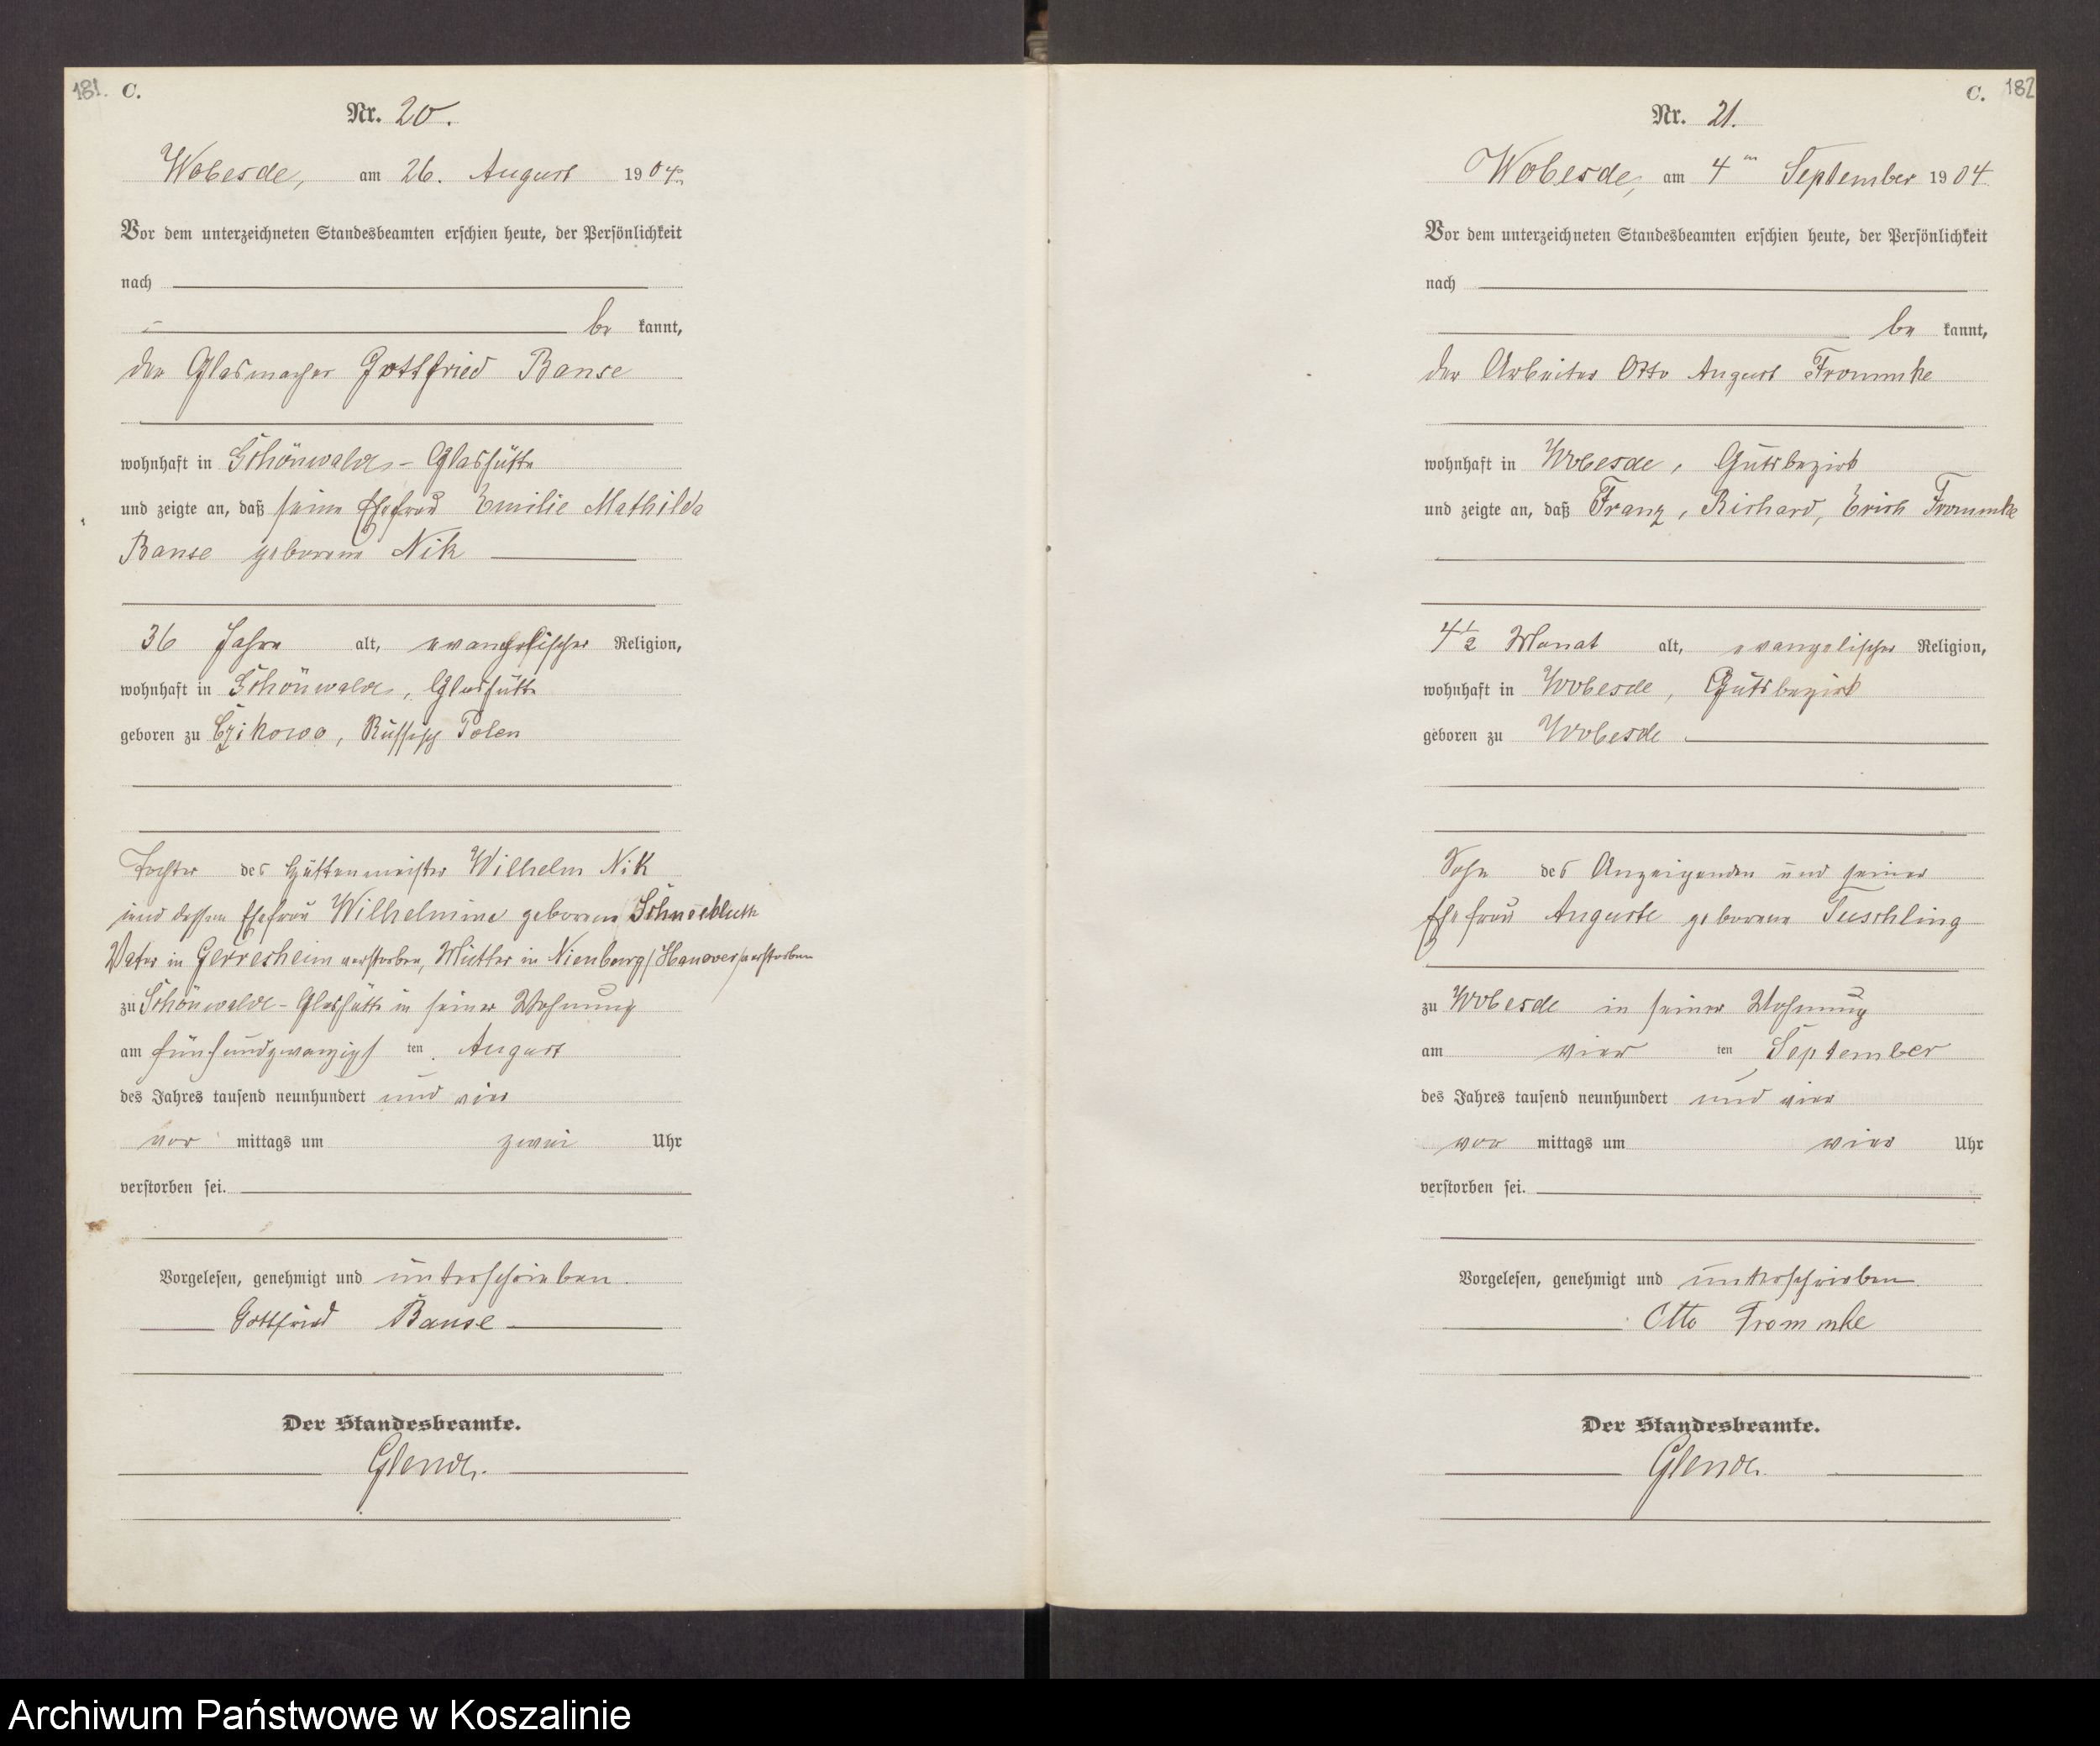 181. C.
Nr. 20.
Wobesde, am 26. August 1904.
Vor dem unterzeichneten Standesbeamten erschien heute, der Persönlichkeit
nach
be kannt,
der Glasmacher Gottfried Banse
wohnhaft in Schönwalde - Glashütte
und zeigte an, daß seine Ehefrau Emilie Mathilde
Banse geborene Nik
36 Jahre alt, evangelischer Religion,
wohnhaft in Schönwalde, Glashütte
geboren zu Czikowo, Russisch Polen
Tochter des Hüttenmeister Wilhelm Nik
und dessen Ehefrau Wilhelmine geborene
Vater in Gerresheim verstorben, Mutter in Nienburg/Hanover/verstorben
zu Schönwalde - Glashütte in seiner Wohnung
am fünfundzwanzigs ten August
des Jahres tausend neunhundert und vier
vor mittags um zwei Uhr
verstorben sei.
Vorgelesen, genehmigt und unterschrieben.
Gottfried Banse
Der Standesbeamte.
Glende.
C. 182
Nr. 21.
Wobesde, am 4ten September 1904
Vor dem unterzeichneten Standesbeamten erschien heute, der Persönlichkeit
nach
be kannt,
der Arbeiter Otto August Frommke
wohnhaft in Wobesde, Gutsbezirk
und zeigte an, daß Franz, Richard, Erich Frommke
4 1/2 Monat alt, evangelischer Religion,
wohnhaft in Wobesde, Gutsbezirk
geboren zu Wobesde
Sohn des Anzeigenden und seiner
Ehefrau Auguste geborene Tuschling
zu Wobesde in seiner Wohnung
am vier ten September
des Jahres tausend neunhundert und vier
vor mittags um vier Uhr
verstorben sei.
Vorgelesen, genehmigt und unterschrieben.
Otto Frommke
Der Standesbeamte.
Glende.
Archiwum Państwowe w Koszalinie